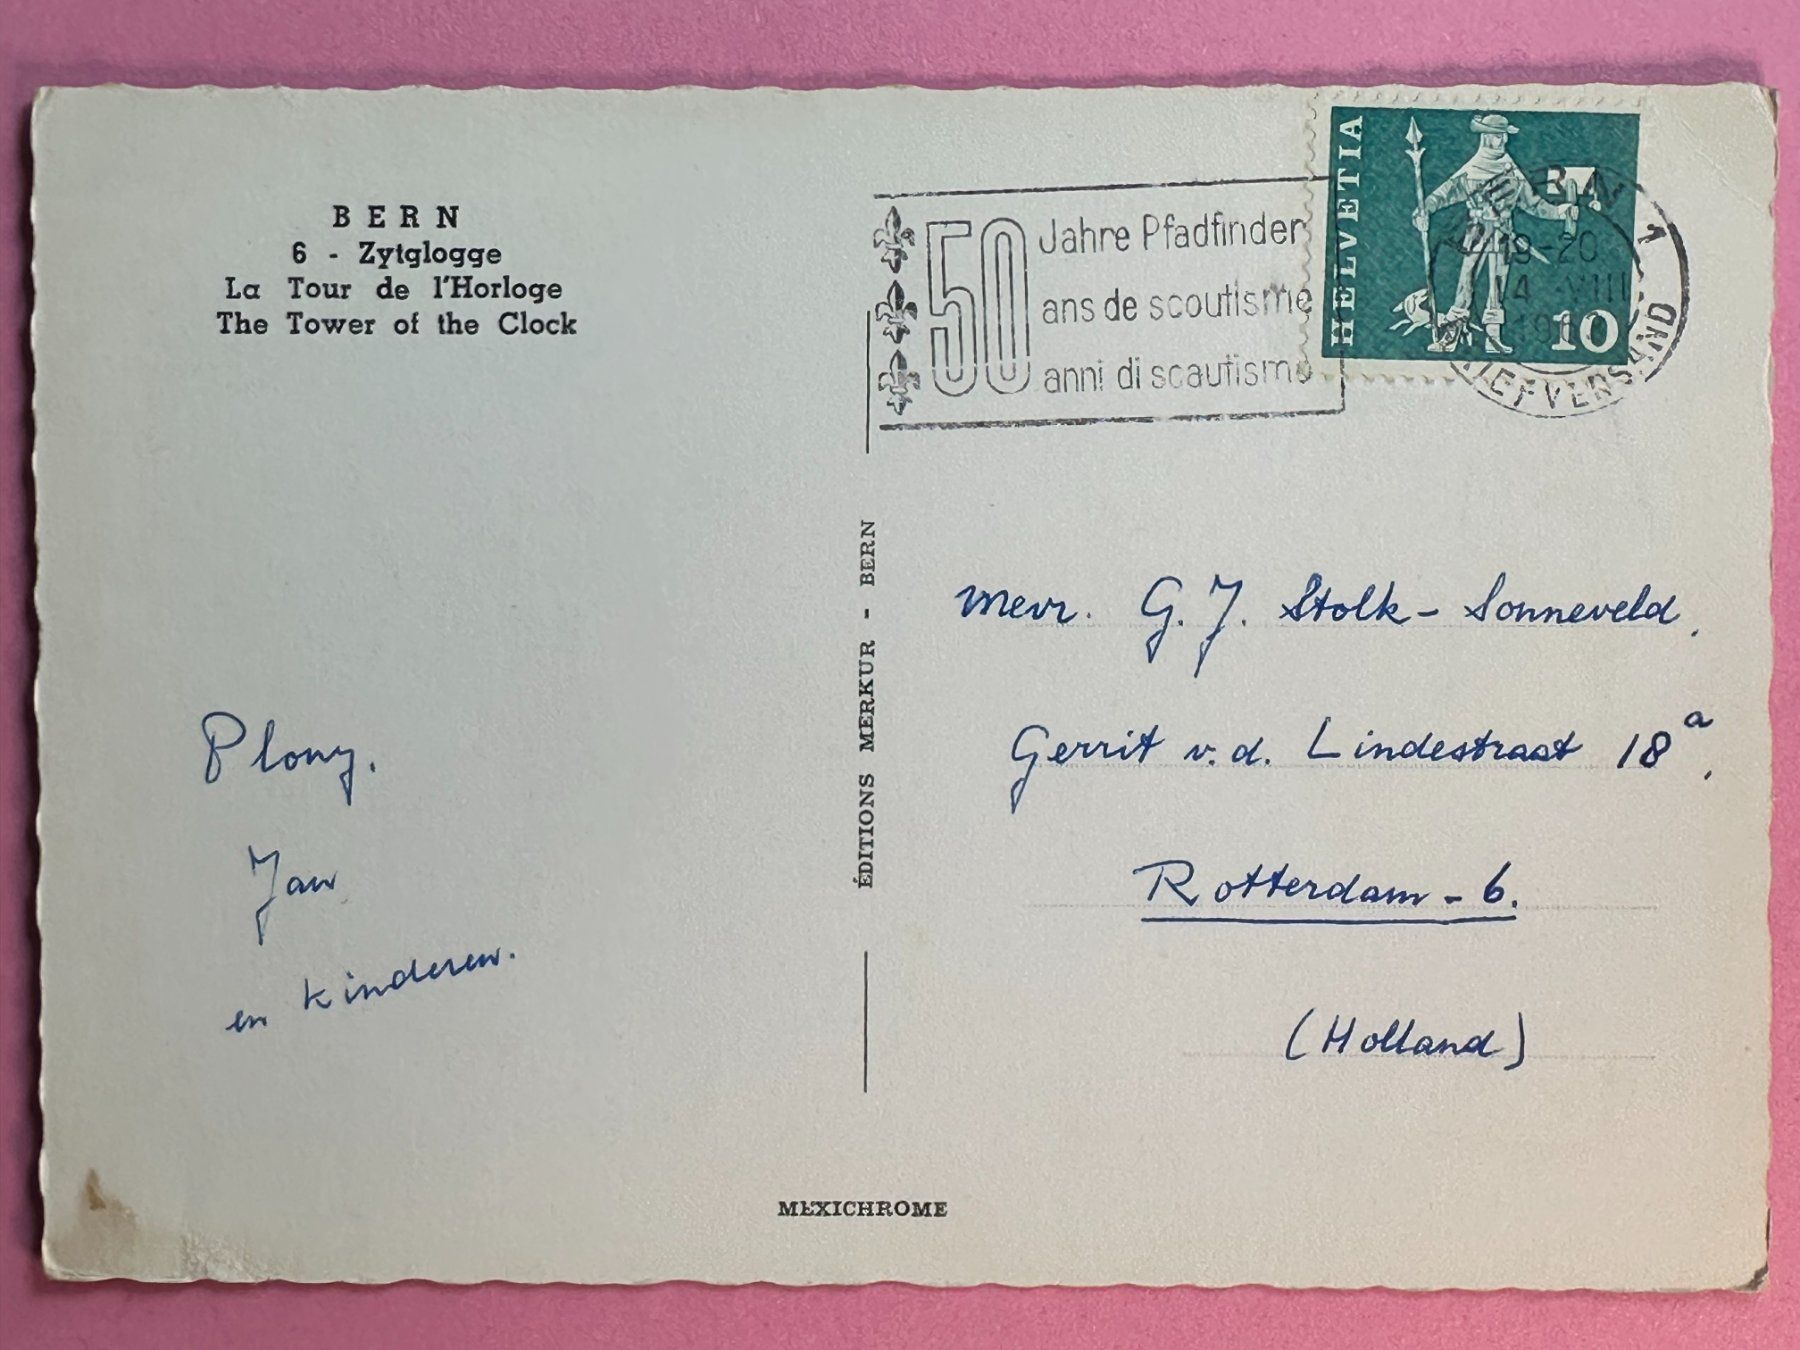 BERN
6 - Zytglogge
La Tour de l'Horloge
The Tower of the Clock
50
Jahre Pfadfinder
ans de scoutisme
anni di scautismo
HELVETIA
10
BERN 1
19-20
14 VIII
BRIEFVERSAND
ÉDITIONS MERKUR - BERN
Mevr. G. J. Stolk - Sonneveld,
Gerrit v. d. Lindestraat 18a,
Rotterdam - 6.
(Holland)
Plony.
Jan
en kinderen.
MEXICHROME